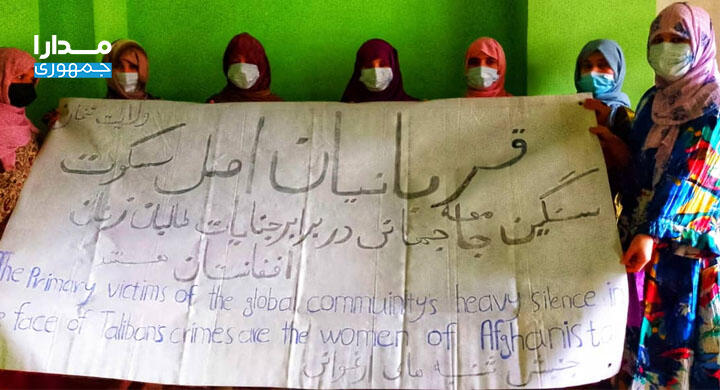 مدارا
جمهوری
ولایت تخار
قربانیان اصل سکوت
سنگین جامعه جهانی در برابر جنایات طالبان زنان
افغانستان هستند
The Primary victims of the global community's heavy silence in
face of Talibans crimes are the women of Afghanista
جنبش شنبه های ارغوانی